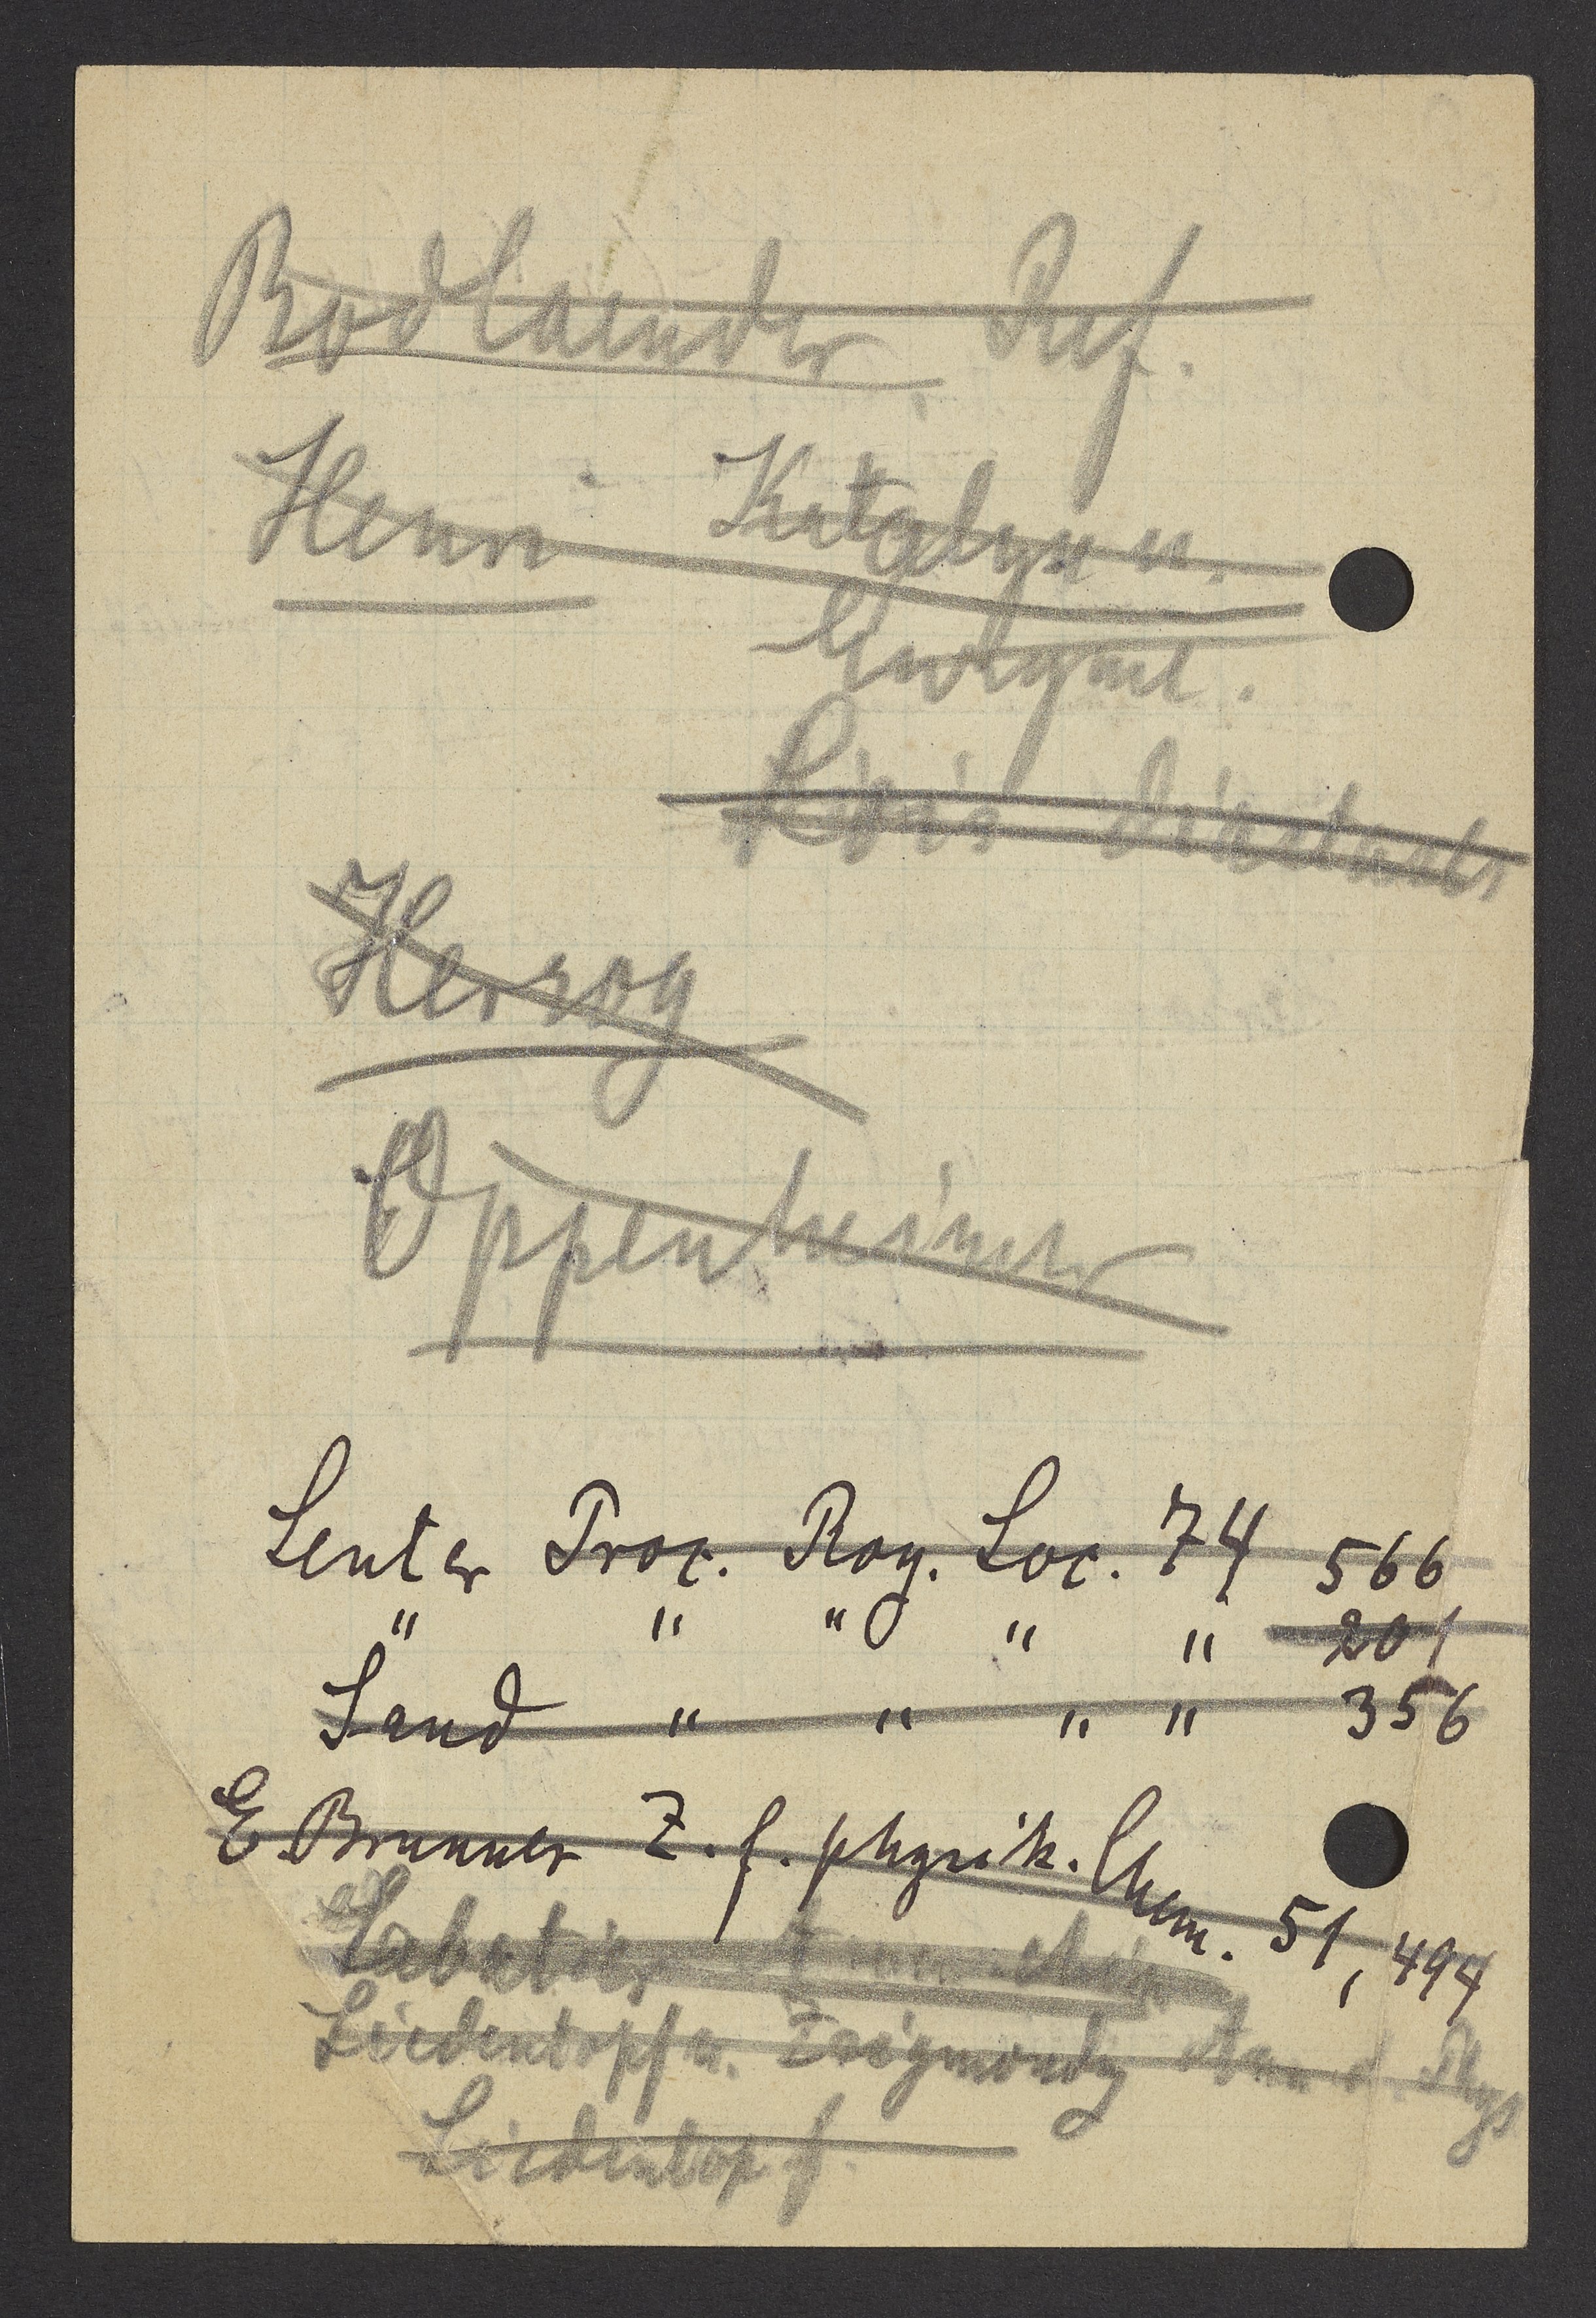 Bodlaender Ref.
Henri Katalyse u.
Enzyme.
Herzog
Oppenheimer
Senter Proc. Roy. Soc. 74 566
" " " " " 201
Sand " " " " 356
E. Brunner Z. f. physik. Chem. 51, 494
Sabatier
Siedentopf u. Zsigmondy Ann d. Phys
Siedentopf